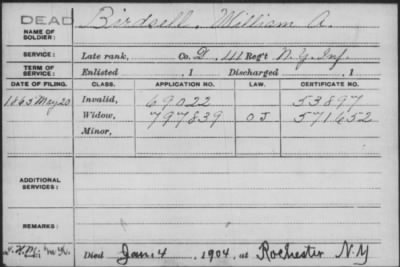 DEAD
NAME OF SOLDIER: Birdsell, William A.
SERVICE: Late rank, Co. D, 141 Reg't N.Y. Inf.
TERM OF SERVICE: Enlisted , 1 Discharged , 1
DATE OF FILING. CLASS. APPLICATION NO. LAW. CERTIFICATE NO.
1865 May 20 Invalid, 69022 53897
Widow, 797839 O J 571652
Minor,
ADDITIONAL SERVICES:
REMARKS:
Died Jan. 4 , 1904, at Rochester N.Y